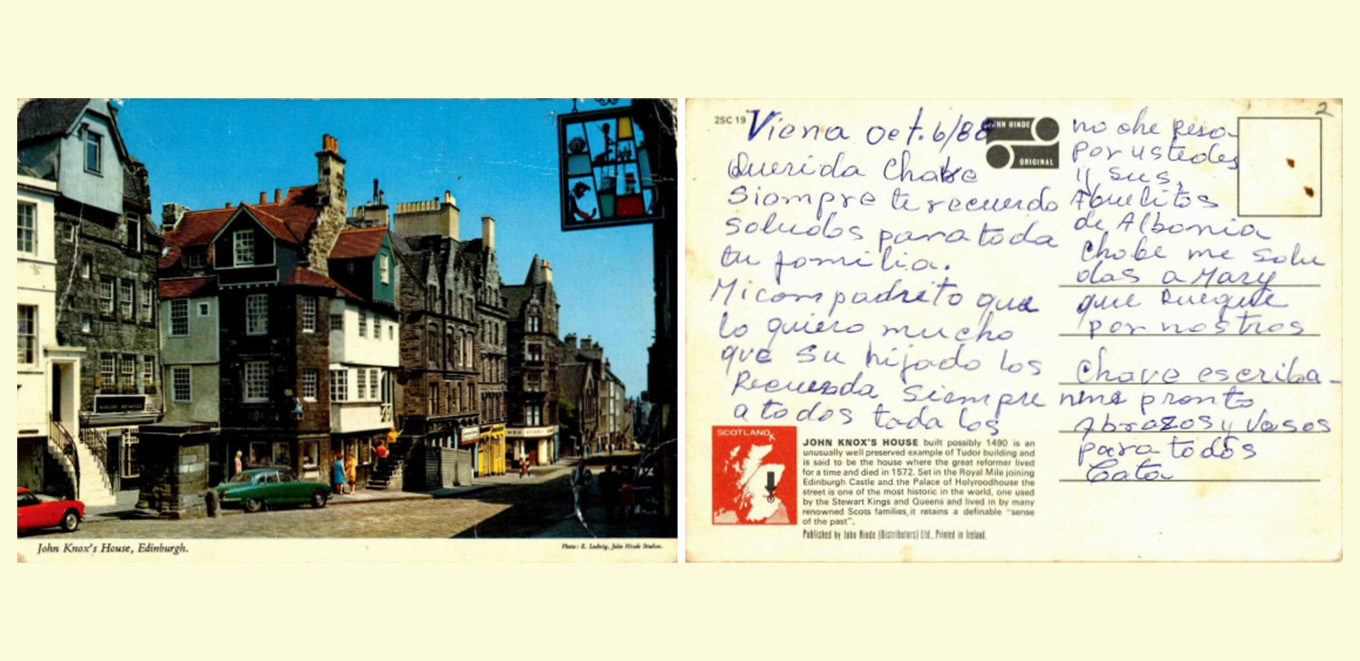 John Knox's House, Edinburgh.
Photo: E. Ludwig, John Hinde Studios.
2SC 19
Viena oct. 6/88
JOHN HINDE
ORIGINAL
2
Querida Chabe
Siempre te recuerdo
saludos para toda
tu familia.
Mi compadrito que
lo quiero mucho
que su hijado los
Recuerda siempre
a todos todas los
no che Resa
por ustedes
y sus
Abuelitos
de Albania
Chabe me salu
das a Mary
que Ruegue
por nostros
Chave escriba-
nme pronto
Abrazos y Vesos
para todos
Cata
SCOTLAND
JOHN KNOX'S HOUSE built possibly 1490 is an
unusually well preserved example of Tudor building and
is said to be the house where the great reformer lived
for a time and died in 1572. Set in the Royal Mile joining
Edinburgh Castle and the Palace of Holyroodhouse the
street is one of the most historic in the world, one used
by the Stewart Kings and Queens and lived in by many
renowned Scots families, it retains a definable "sense
of the past".
Published by John Hinde (Distributors) Ltd., Printed in Ireland.